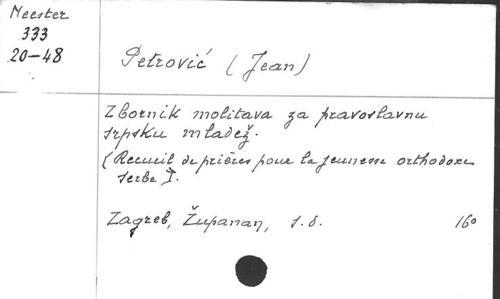 Neester
333
20-48
Petrović (Jean)
Zbornik molitava za pravoslavnu
srpsku mladež.
(Recueil de prières pour la jeunesse orthodoxe
serbe].
Zagreb, Županan, s.d. 16°